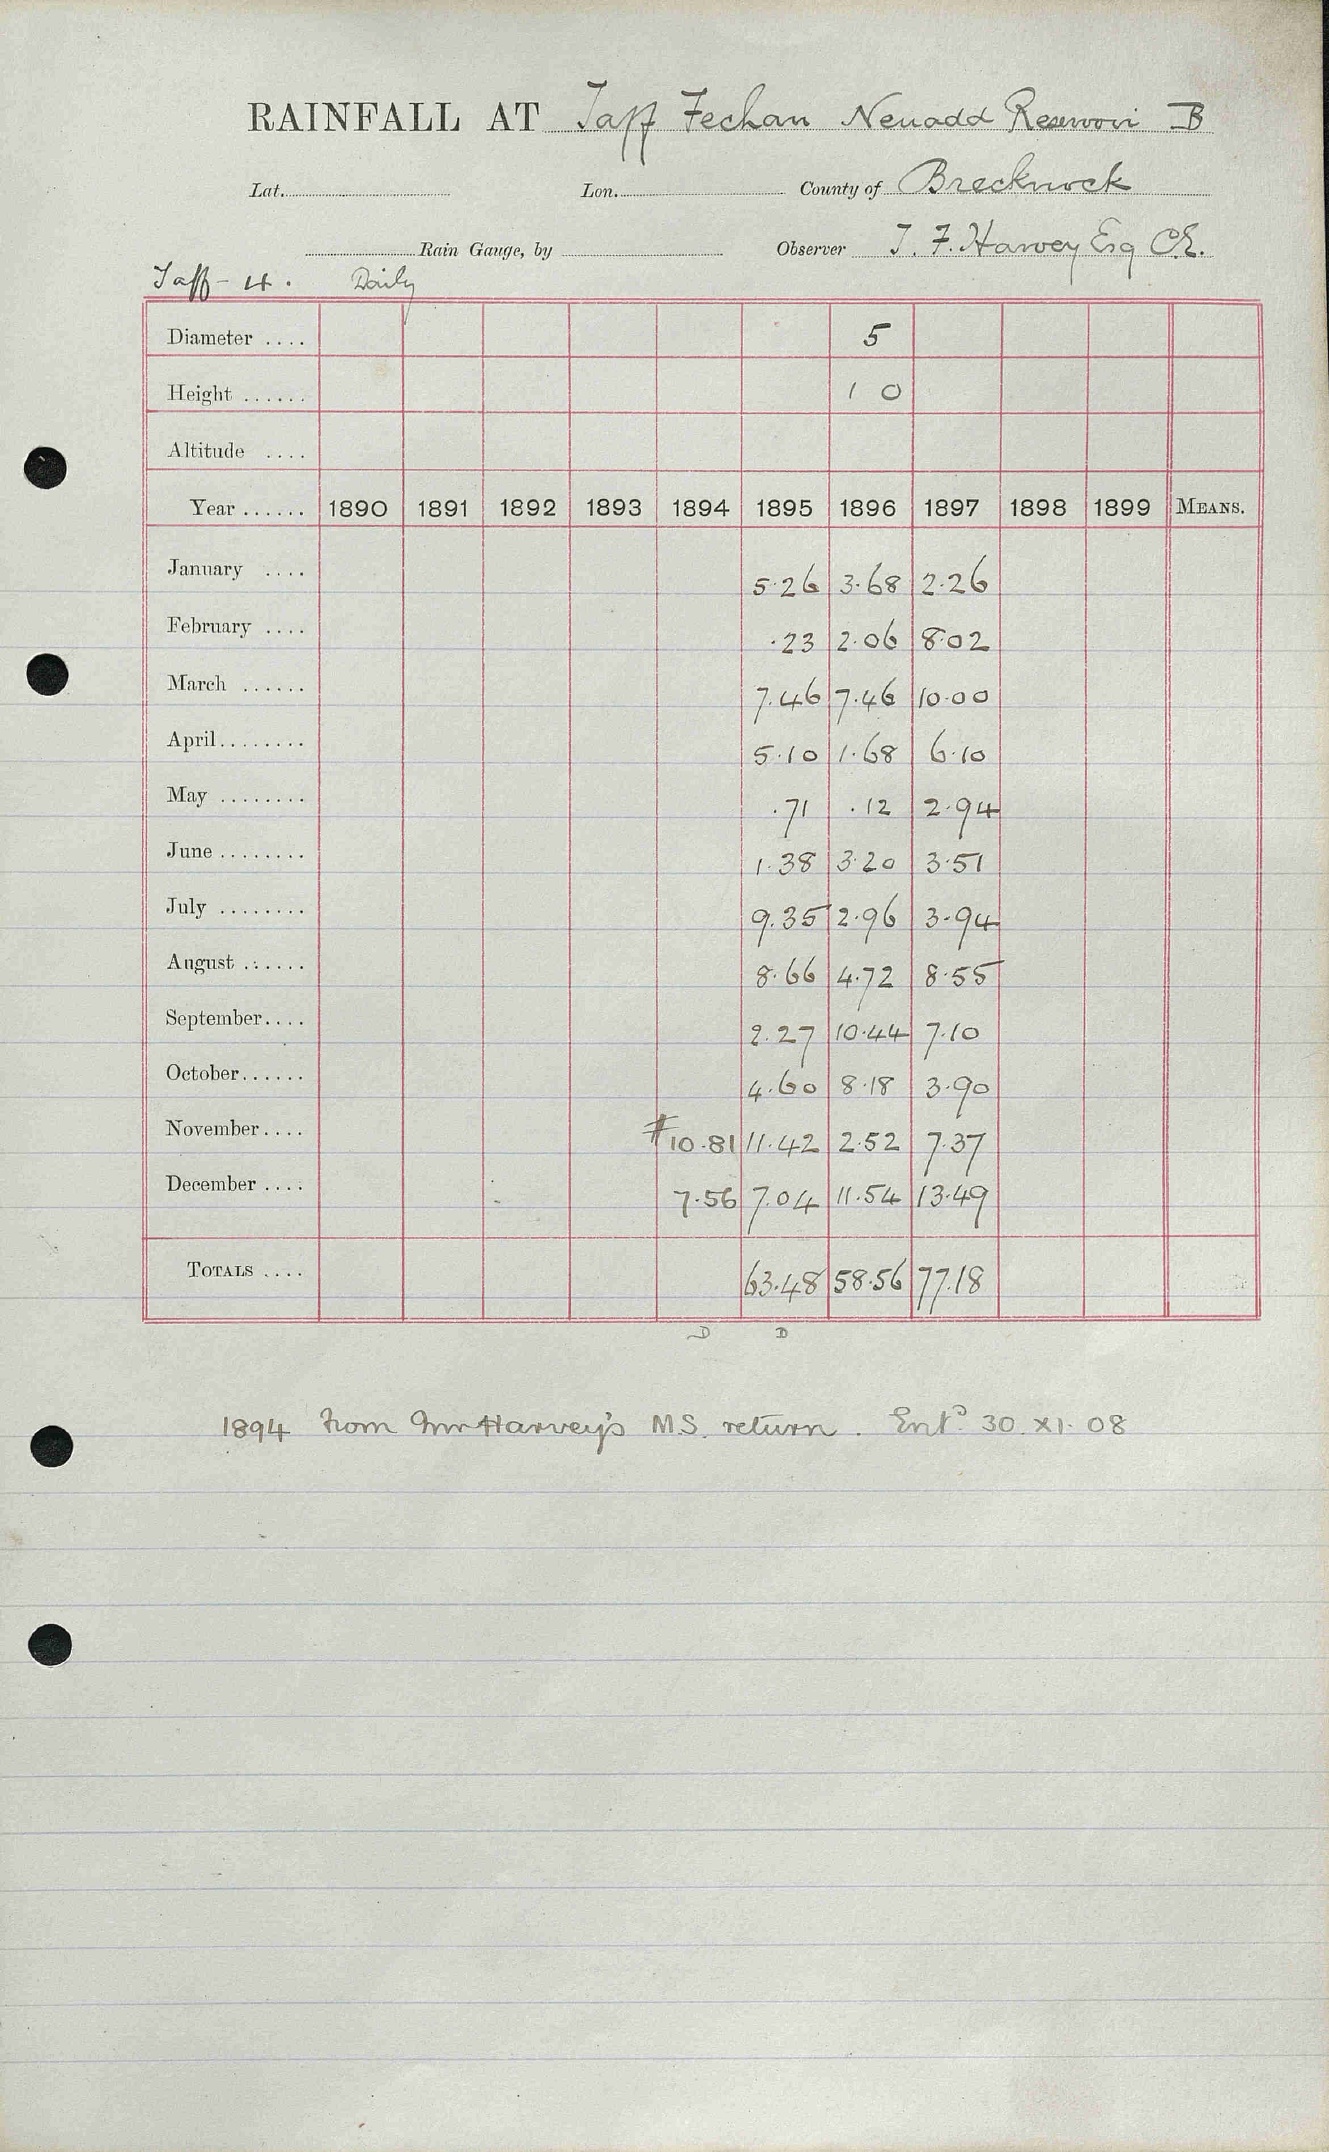 RAINFALL AT Taff Fechan Neuadd Reservoir B
Lat. Lon. County of Brecknock
Rain Gauge, by Observer T. F. Harvey Esq C.E.
Taff - 4. Daily
Diameter .... 5
Height ...... 1 0
Altitude ....
Year ...... 1890 1891 1892 1893 1894 1895 1896 1897 1898 1899 MEANS.
January .... 5.26 3.68 2.26
February .... .23 2.06 8.02
March ...... 7.46 7.46 10.00
April........ 5.10 1.68 6.10
May ........ .71 .12 2.94
June ........ 1.38 3.20 3.51
July ........ 9.35 2.96 3.94
August ...... 8.66 4.72 8.55
September.... 2.27 10.44 7.10
October...... 4.60 8.18 3.90
November.... #10.81 11.42 2.52 7.37
December .... 7.56 7.04 11.54 13.49
TOTALS .... 63.48 58.56 77.18
D D
1894 from Mr Harvey's M.S. return. Entd 30. XI. 08